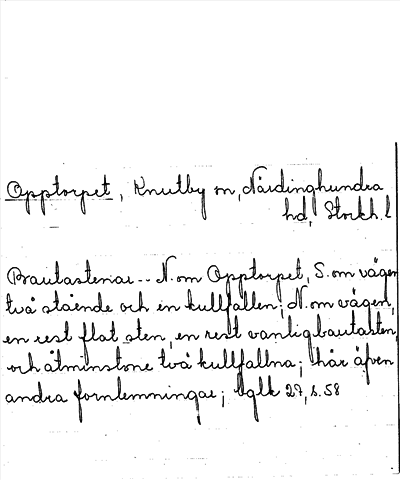 Opptorpet, Knutby sn, Närdinghundra
hd, Stockh. l
Bautastenar.. N. om Opptorpet, S. om vägen
två stående och en kullfallen; N. om vägen,
en rest flat sten, en rest vanlig bautasten,
och åtminstone två kullfallna; här äfven
andra fornlemningar; Uglk 27, s. 58